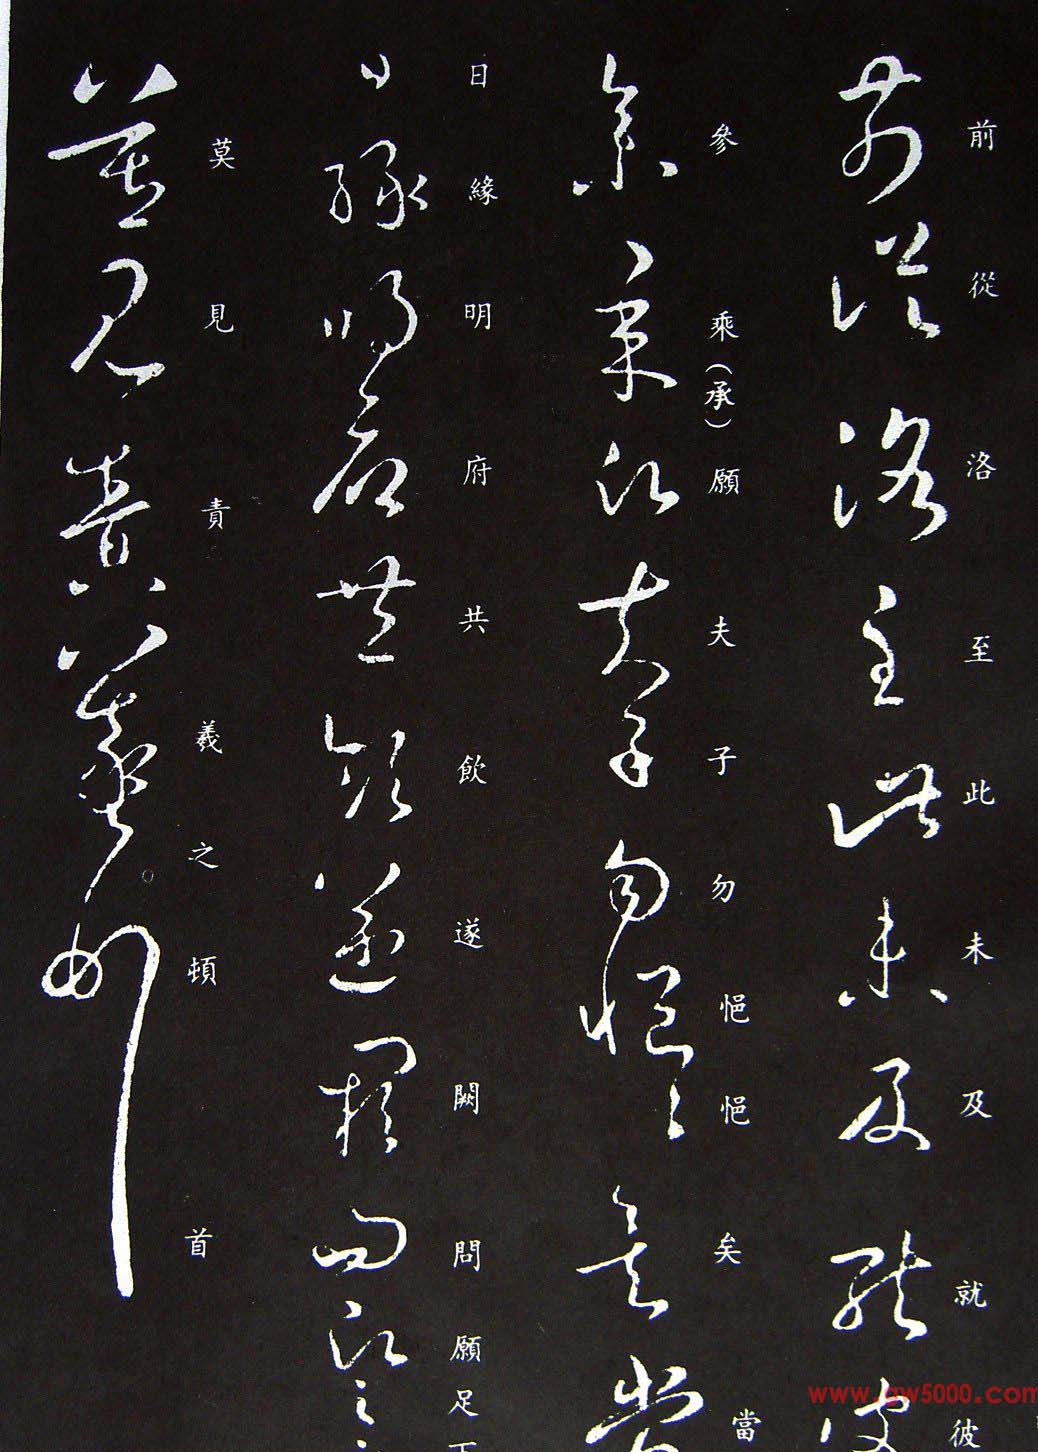 前從洛至此未及就彼
參乘(承)願夫子勿悒悒矣當
日緣明府共飲遂闕問願足下
莫見責羲之頓首
www.gw5000.com